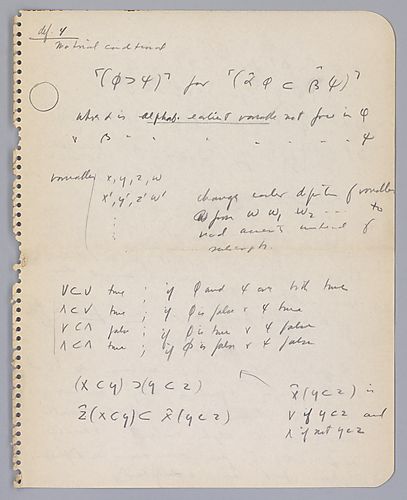 def. 4
Material conditional
⌜(φ ⊃ ψ)⌝ for ⌜(α̂ φ ⊂ β̂ ψ)⌝
where α is alphab. earliest variable not free in φ
" β " " " " " " ψ
variables x, y, z, w
x', y', z' w'
change earlier of variables
from w w₁ w₂ --- to
accents instead of
subscripts.
V⊂V true ; if φ and ψ are both true
Λ⊂V true ; if φ is false & ψ true
V⊂Λ false ; if φ is true & ψ false
Λ⊂Λ true ; if φ is false & ψ false
(x⊂y) ⊃ (y⊂z)
ẑ(x⊂y) ⊂ x̂(y⊂z)
x̂(y⊂z) is
V if y⊂z and
Λ if not y⊂z